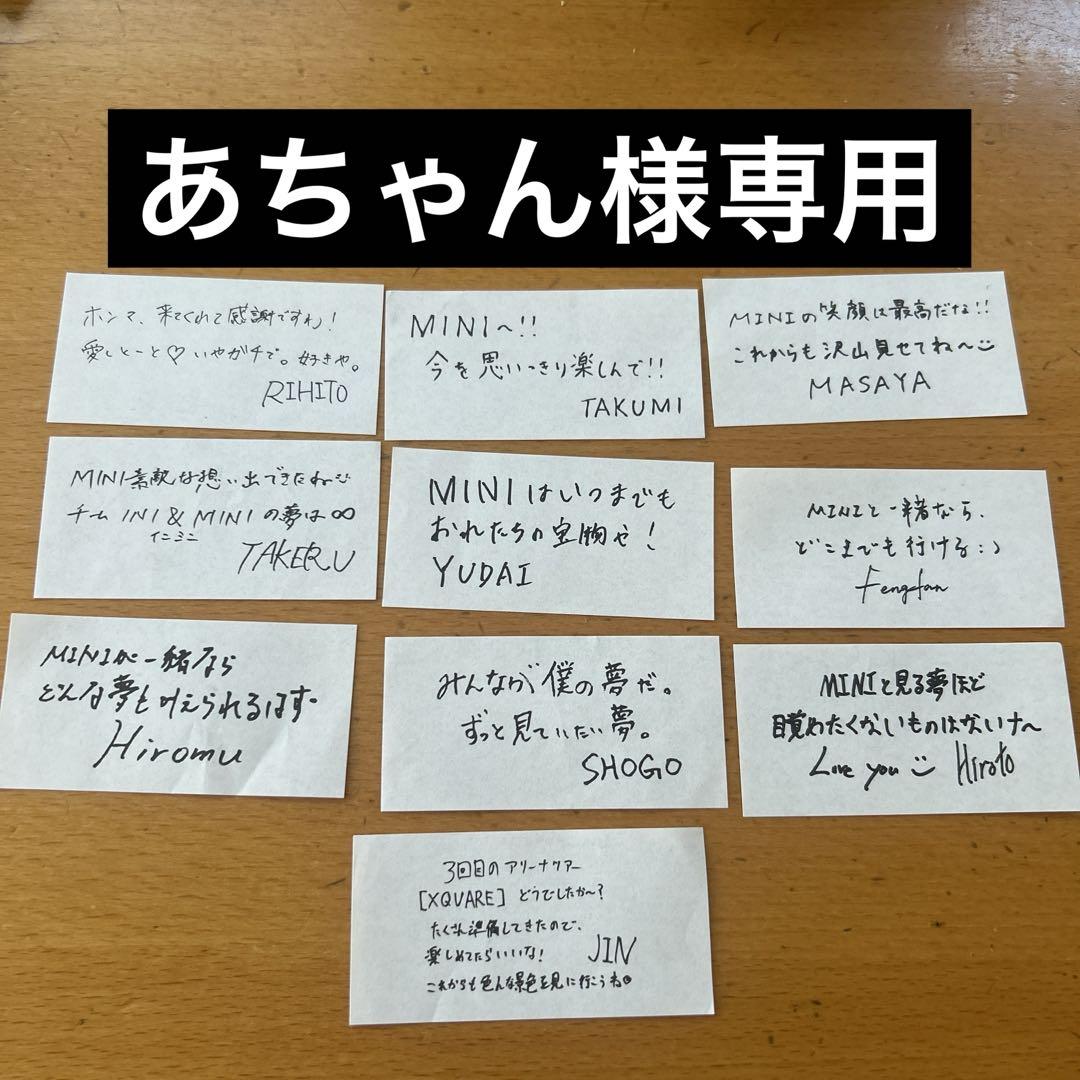 あちゃん様専用
ホンマ、来てくれて感謝ですわ!
愛しとーと♡いやガチで。好きや。
RIHITO
MINI〜!!
今を思いっきり楽しんで!!
TAKUMI
MINIの笑顔は最高だな!!
これからも沢山見せてね〜
MASAYA
MINI素敵な想い出できたね
チーム INI & MINI の夢は∞
イニミニ
TAKERU
MINIはいつまでも
おれたちの宝物や!
YUDAI
MINIと一緒なら、
どこまでも行ける:)
Fengfan
MINIが一緒なら
どんな夢も叶えられるはず
Hiromu
みんなが僕の夢だ。
ずっと見ていたい夢。
SHOGO
MINIと見る夢ほど
目覚めたくないものはないナ〜
Love you Hiroto
3回目のアリーナツアー
[XQUARE] どうでしたか〜?
たくさん準備してきたので、
楽しめてたらいいな!
JIN
これからも色んな景色を見に行こうね